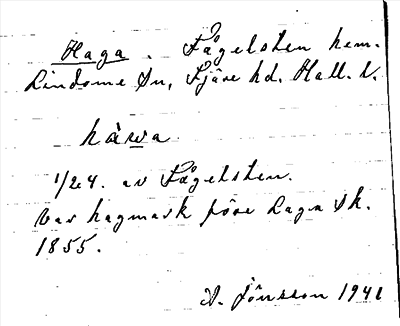 Haga. Fågelsten hem.
Lindome sn, Fjäre hd. Hall. l.
hàwa
1/24. av Fågelsten.
Var hagmark före Laga sk.
1855.
A. Jönsson 1941